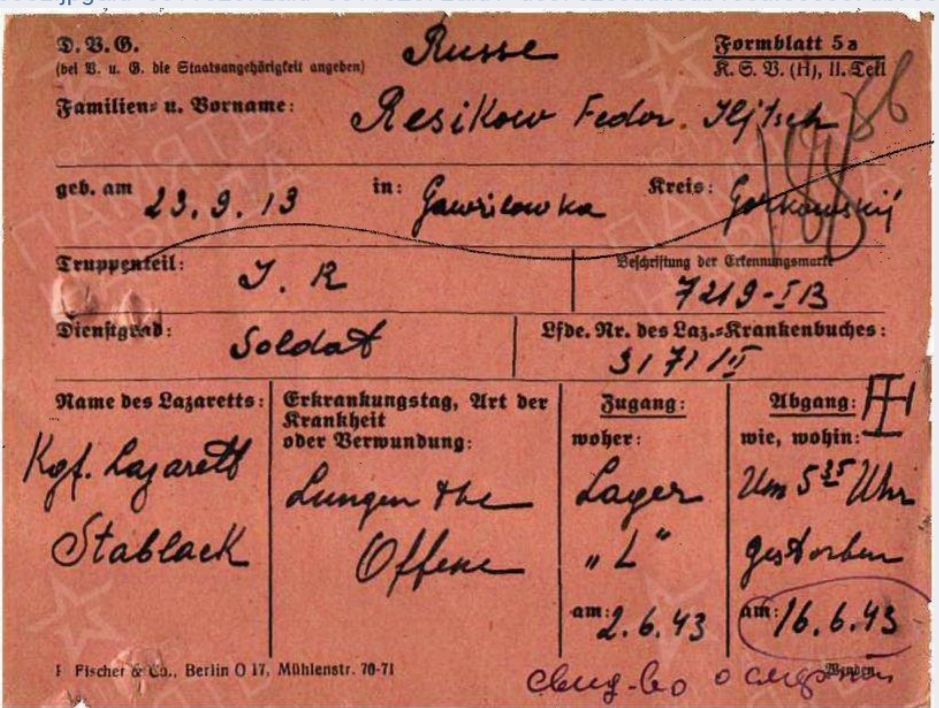 D.V.G.
Russe
Formblatt 5a
(bei V. u. G. die Staatsangehörigkeit angeben)
K. S. V. (H), II. Teil
Familien- u. Vorname:
Resikow Fedor. Iljitsch
geb. am 23.9.13 in: Gawrilowka Kreis: Gorkowskij
Truppenteil: J. R
Beschriftung der Erkennungsmarke
7219-IB
Dienstgrad: Soldat
Lfde. Nr. des Laz.-Krankenbuches:
3171 II
Name des Lazaretts:
Kgf. Lazarett
Stablack
Erkrankungstag, Art der
Krankheit
oder Verwundung:
Lungen tbc
Offene
Zugang:
woher:
Lager
"L"
am: 2.6.43
Abgang:
wie, wohin:
Um 5 35 Uhr
gestorben
am: 16.6.43
Fischer & Co., Berlin O 17, Mühlenstr. 70-71
Wenden
свид-во о смерти
ПАМЯТЬ